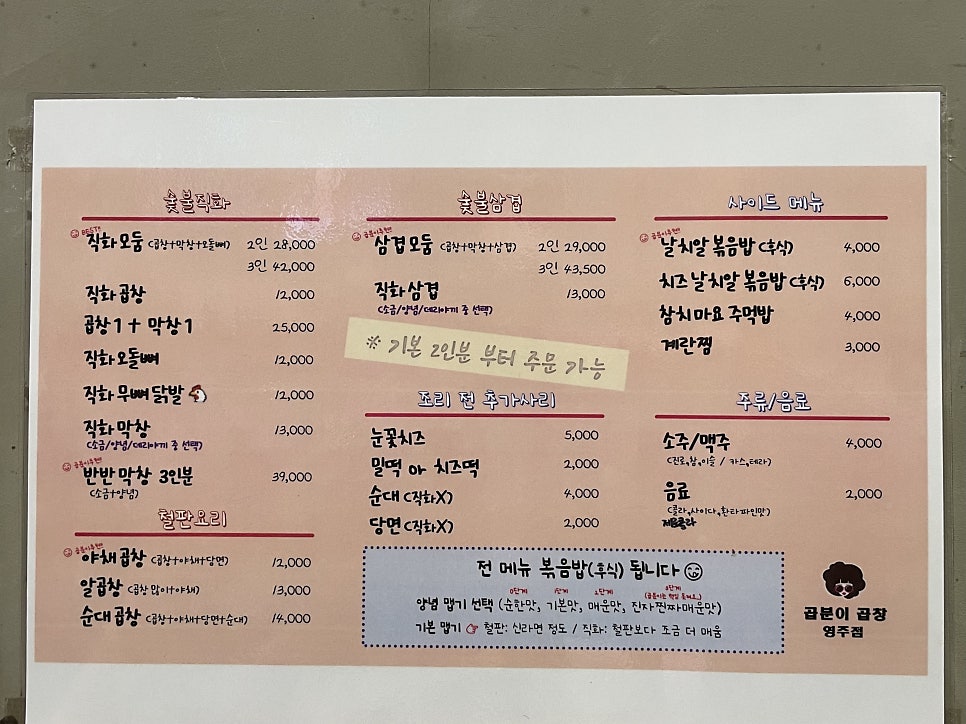 숯불직화
BEST!!
직화모둠 (곱창+막창+오돌뼈) 2인 28,000
3인 42,000
직화곱창 12,000
곱창1 + 막창1 25,000
직화오돌뼈 12,000
직화무뼈닭발 12,000
직화막창 13,000
(소금/양념/데리야끼 중 선택)
반반막창 3인분 39,000
(소금+양념)
철판요리
야채곱창 (곱창+야채+당면) 12,000
알곱창 (곱창많이+야채) 13,000
순대곱창 (곱창+야채+당면+순대) 14,000
숯불삼겹
곱분이추천!!
삼겹모둠 (곱창+막창+삼겹) 2인 29,000
3인 43,500
직화삼겹 13,000
(소금/양념/데리야끼 중 선택)
※ 기본 2인분 부터 주문 가능
조리 전 추가사리
눈꽃치즈 5,000
밀떡 or 치즈떡 2,000
순대(직화X) 4,000
당면(직화X) 2,000
사이드 메뉴
곱분이추천!!
날치알 볶음밥(후식) 4,000
치즈 날치알 볶음밥(후식) 6,000
참치마요 주먹밥 4,000
계란찜 3,000
주류/음료
소주/맥주 4,000
(진로,참,이슬 / 카스,테라)
음료 2,000
(콜라,사이다,환타파인맛)
제로콜라
전 메뉴 볶음밥(후식) 됩니다
0단계 1단계 2단계 3단계
양념 맵기 선택 (순한맛, 기본맛, 매운맛, 진자찐짜매운맛)
기본 맵기 철판: 신라면 정도 / 직화: 철판보다 조금 더 매움
곱분이 곱창
영주점